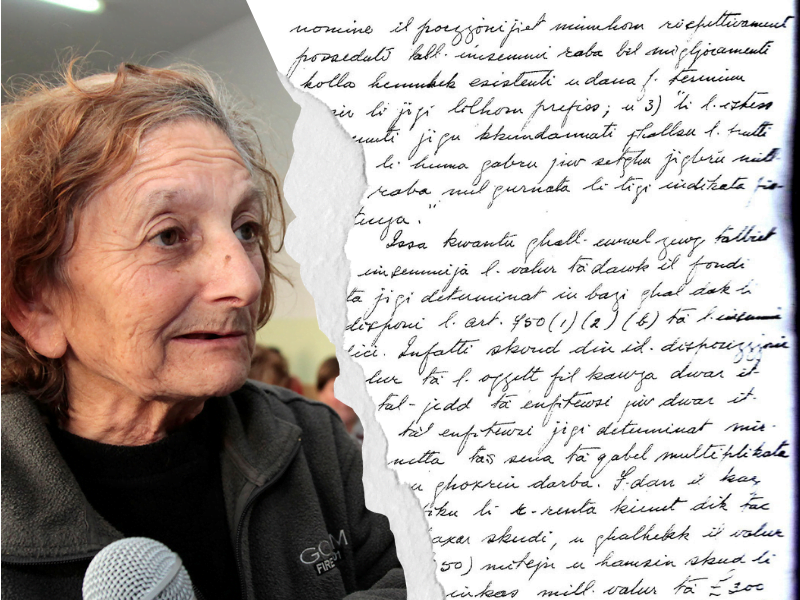 nomine il pussijonijiet minnhom rispettivament
posseduti tall-insemmi raba bil migljoramenti
kollha hemmhekk esistenti u dana f. terminu
li jigi lilhom prefiss; u 3) "li l-istess
jigu kkundannati jħallsu l-frutti
li huma gabru jew setgħu jigbru mill-
raba mil gurnata li tigi indikata fis-
Issa kwantu għall-ewwel zewg talbiet
insemmija l-valur ta dawk il fondi
jigi determinat in bazi għal dak li
disponi l-art. 450 (1) (2) (b) ta l-insemmi
Infatti skond din id-disposizzjoni
ta l-oggett fil kawza dwar it
tal-jedd ta enfitewsi jew dwar it-
ta enfitewsi jigi determinat mir-
ta sena ta qabel multiplikata
għoxrin darba. F'dan il kaz
li r-renta kienet dik tac
skudi, u għalhekk il valur
50) mitejn u hamsin skud li
inkas mill-valur ta £300
GOM
FIRE